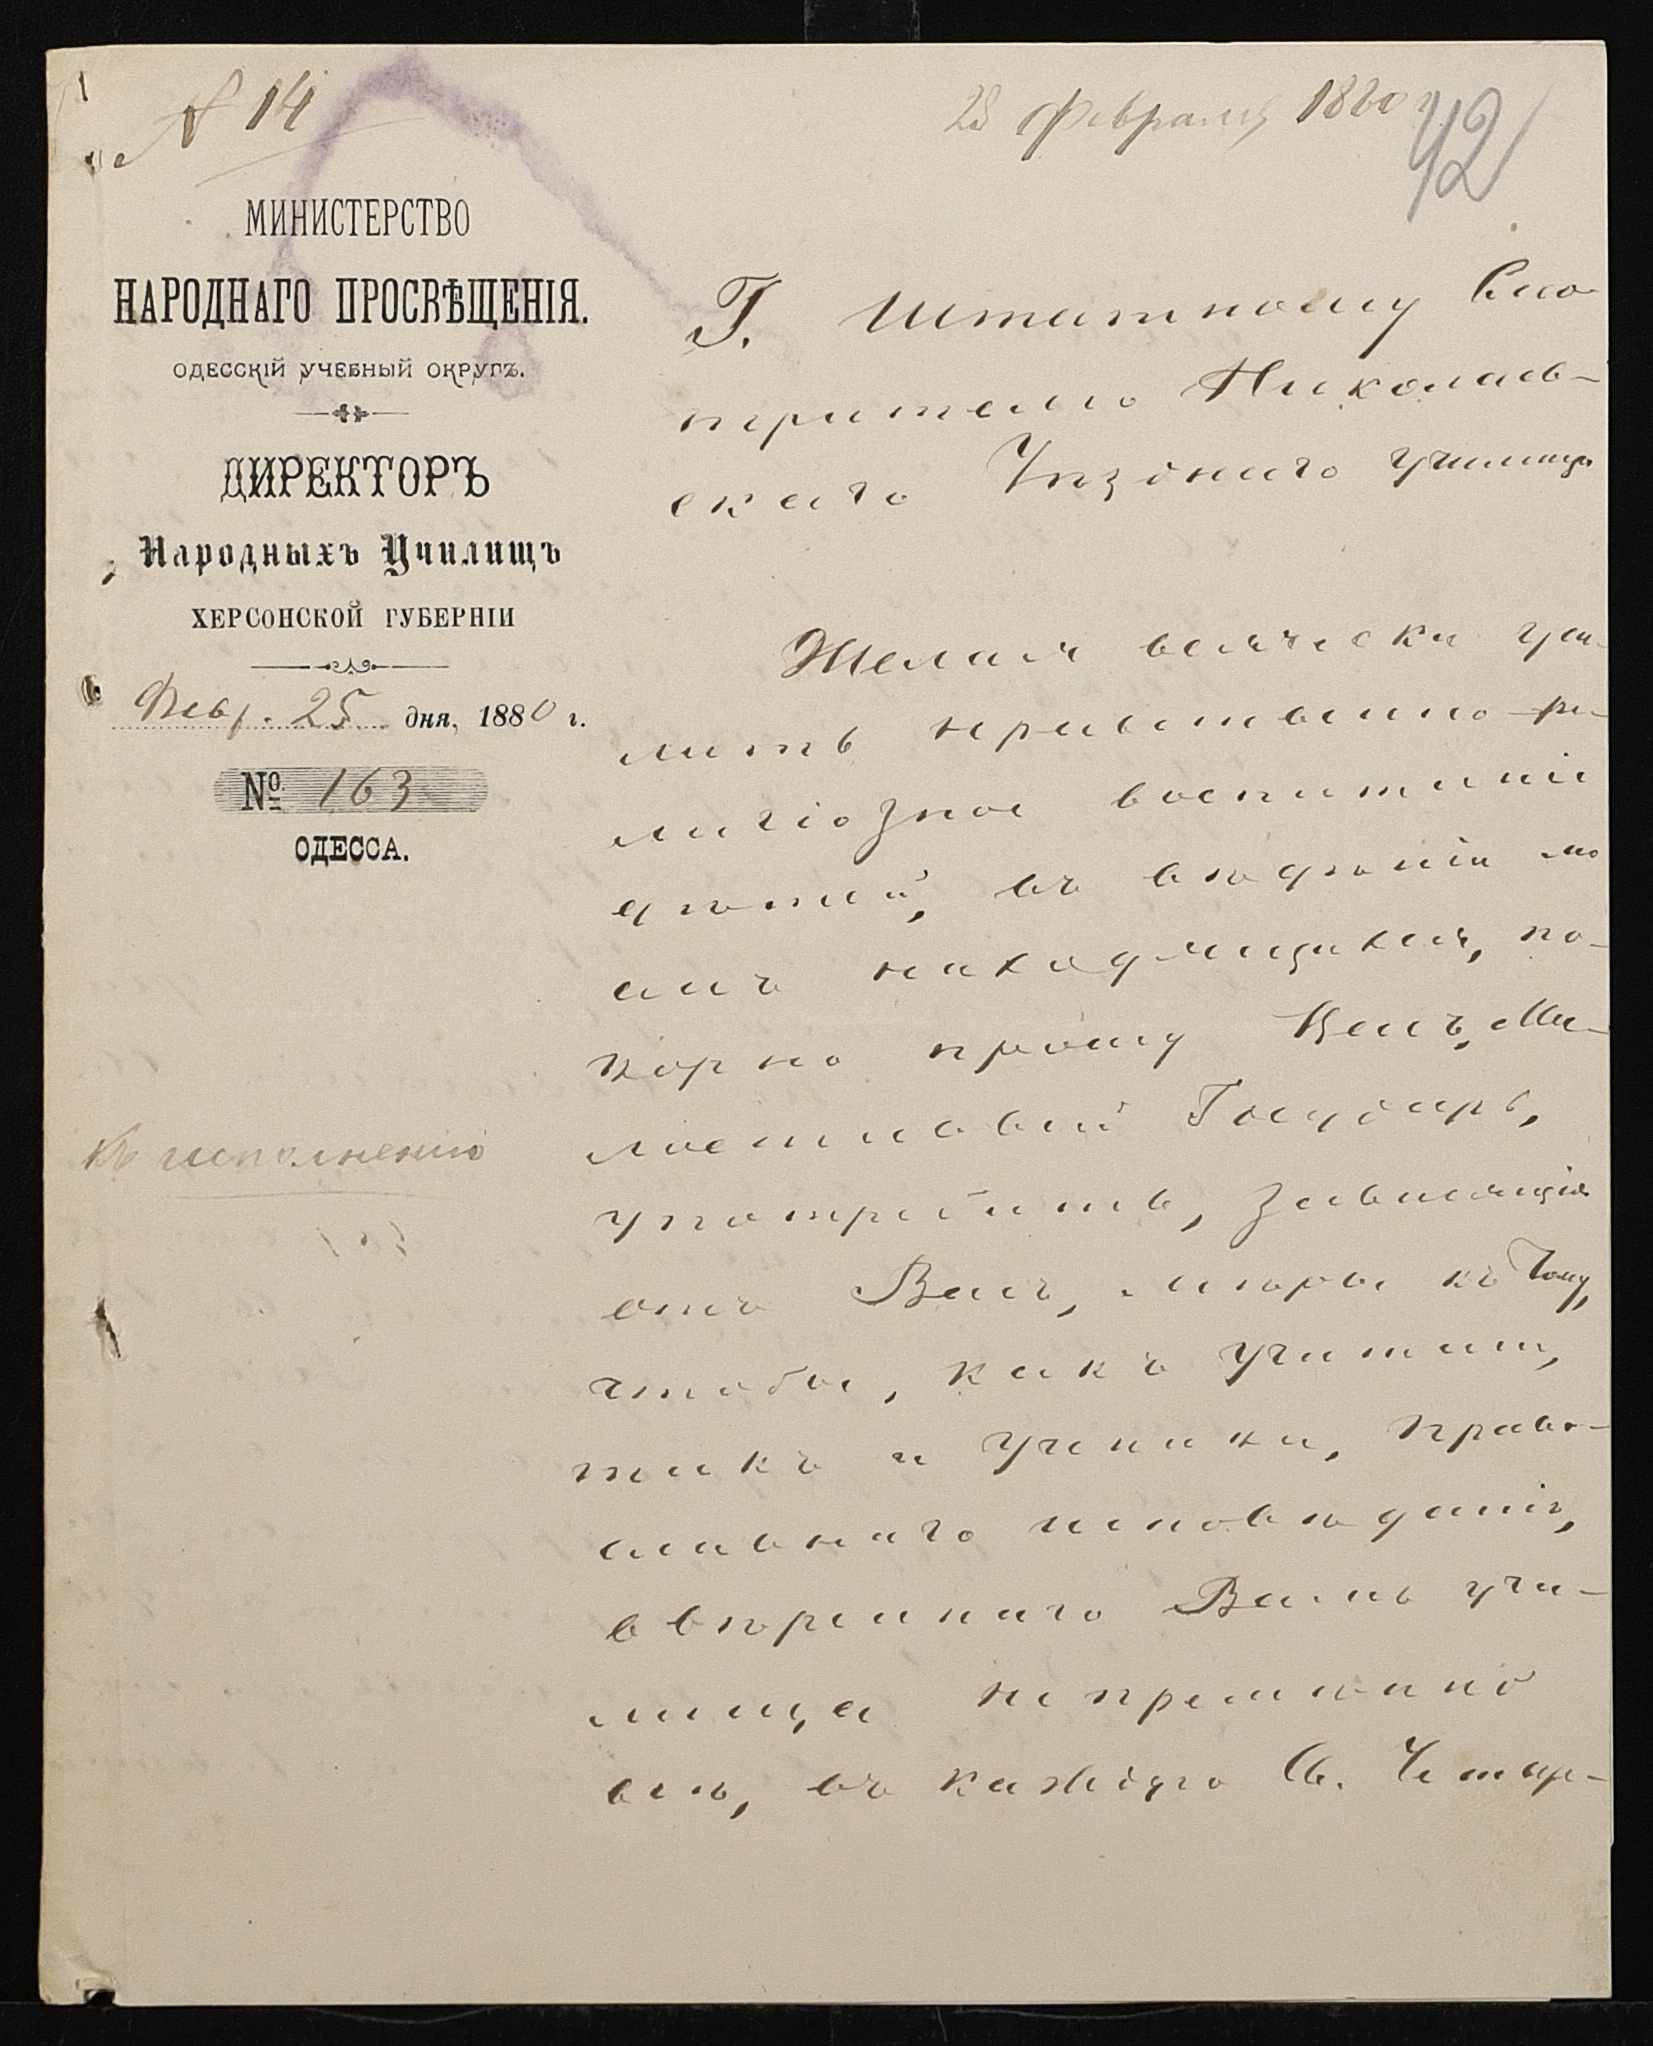 № 14
28 Февраля 1880 г
42
МИНИСТЕРСТВО
НАРОДНАГО ПРОСВѢЩЕНІЯ.
ОДЕССКІЙ УЧЕБНЫЙ ОКРУГЪ.
ДИРЕКТОРЪ
Народныхъ Училищъ
ХЕРСОНСКОЙ ГУБЕРНІИ
Февр. 25 дня, 1880 г.
№ 163
ОДЕССА.
Къ исполненію
Г. Штатному Смо-
трителю Николаев-
скаго Уѣзднаго Училища
Желая всячески уси-
лить нравственно-ре-
лигіозное воспитаніе
дѣтей, въ вѣдѣніи мо
емъ находящихся, по-
корно прошу Васъ, Ми-
лостивый Государь,
употребить, зависящія
отъ Васъ, мѣры къ тому,
чтобы, какъ учители,
такъ и ученики, право-
славнаго исповѣданія,
ввѣреннаго Вамъ учи-
лища непремѣнно
всѣ, въ каждую Св. Четыре-